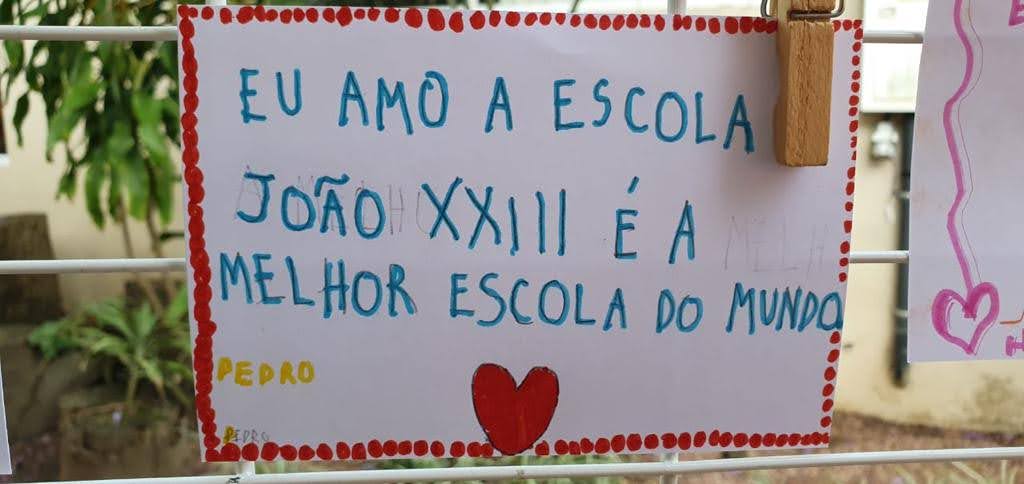 EU AMO A ESCOLA
JOÃO XXIII É A
MELHOR ESCOLA DO MUNDO
PEDRO
PEDRO